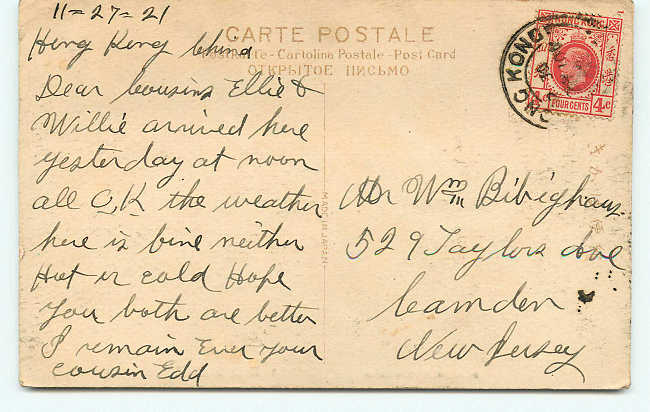 11-27-21
Hong Kong China
Dear Cousins Ellie &
Willie arrived here
yesterday at noon
all O.K. the weather
here is fine neither
Hot or cold Hope
you both are better
I remain Ever your
cousin Edd
CARTE POSTALE
Cartolina Postale - Post Card
ОТКРЫТОЕ ПИСЬМО
MADE IN JAPAN
HONG KONG
HONG KONG
FOUR CENTS 4c
香港
Mr Wm Bibighaus
529 Taylors Ave
Camden
New Jersey